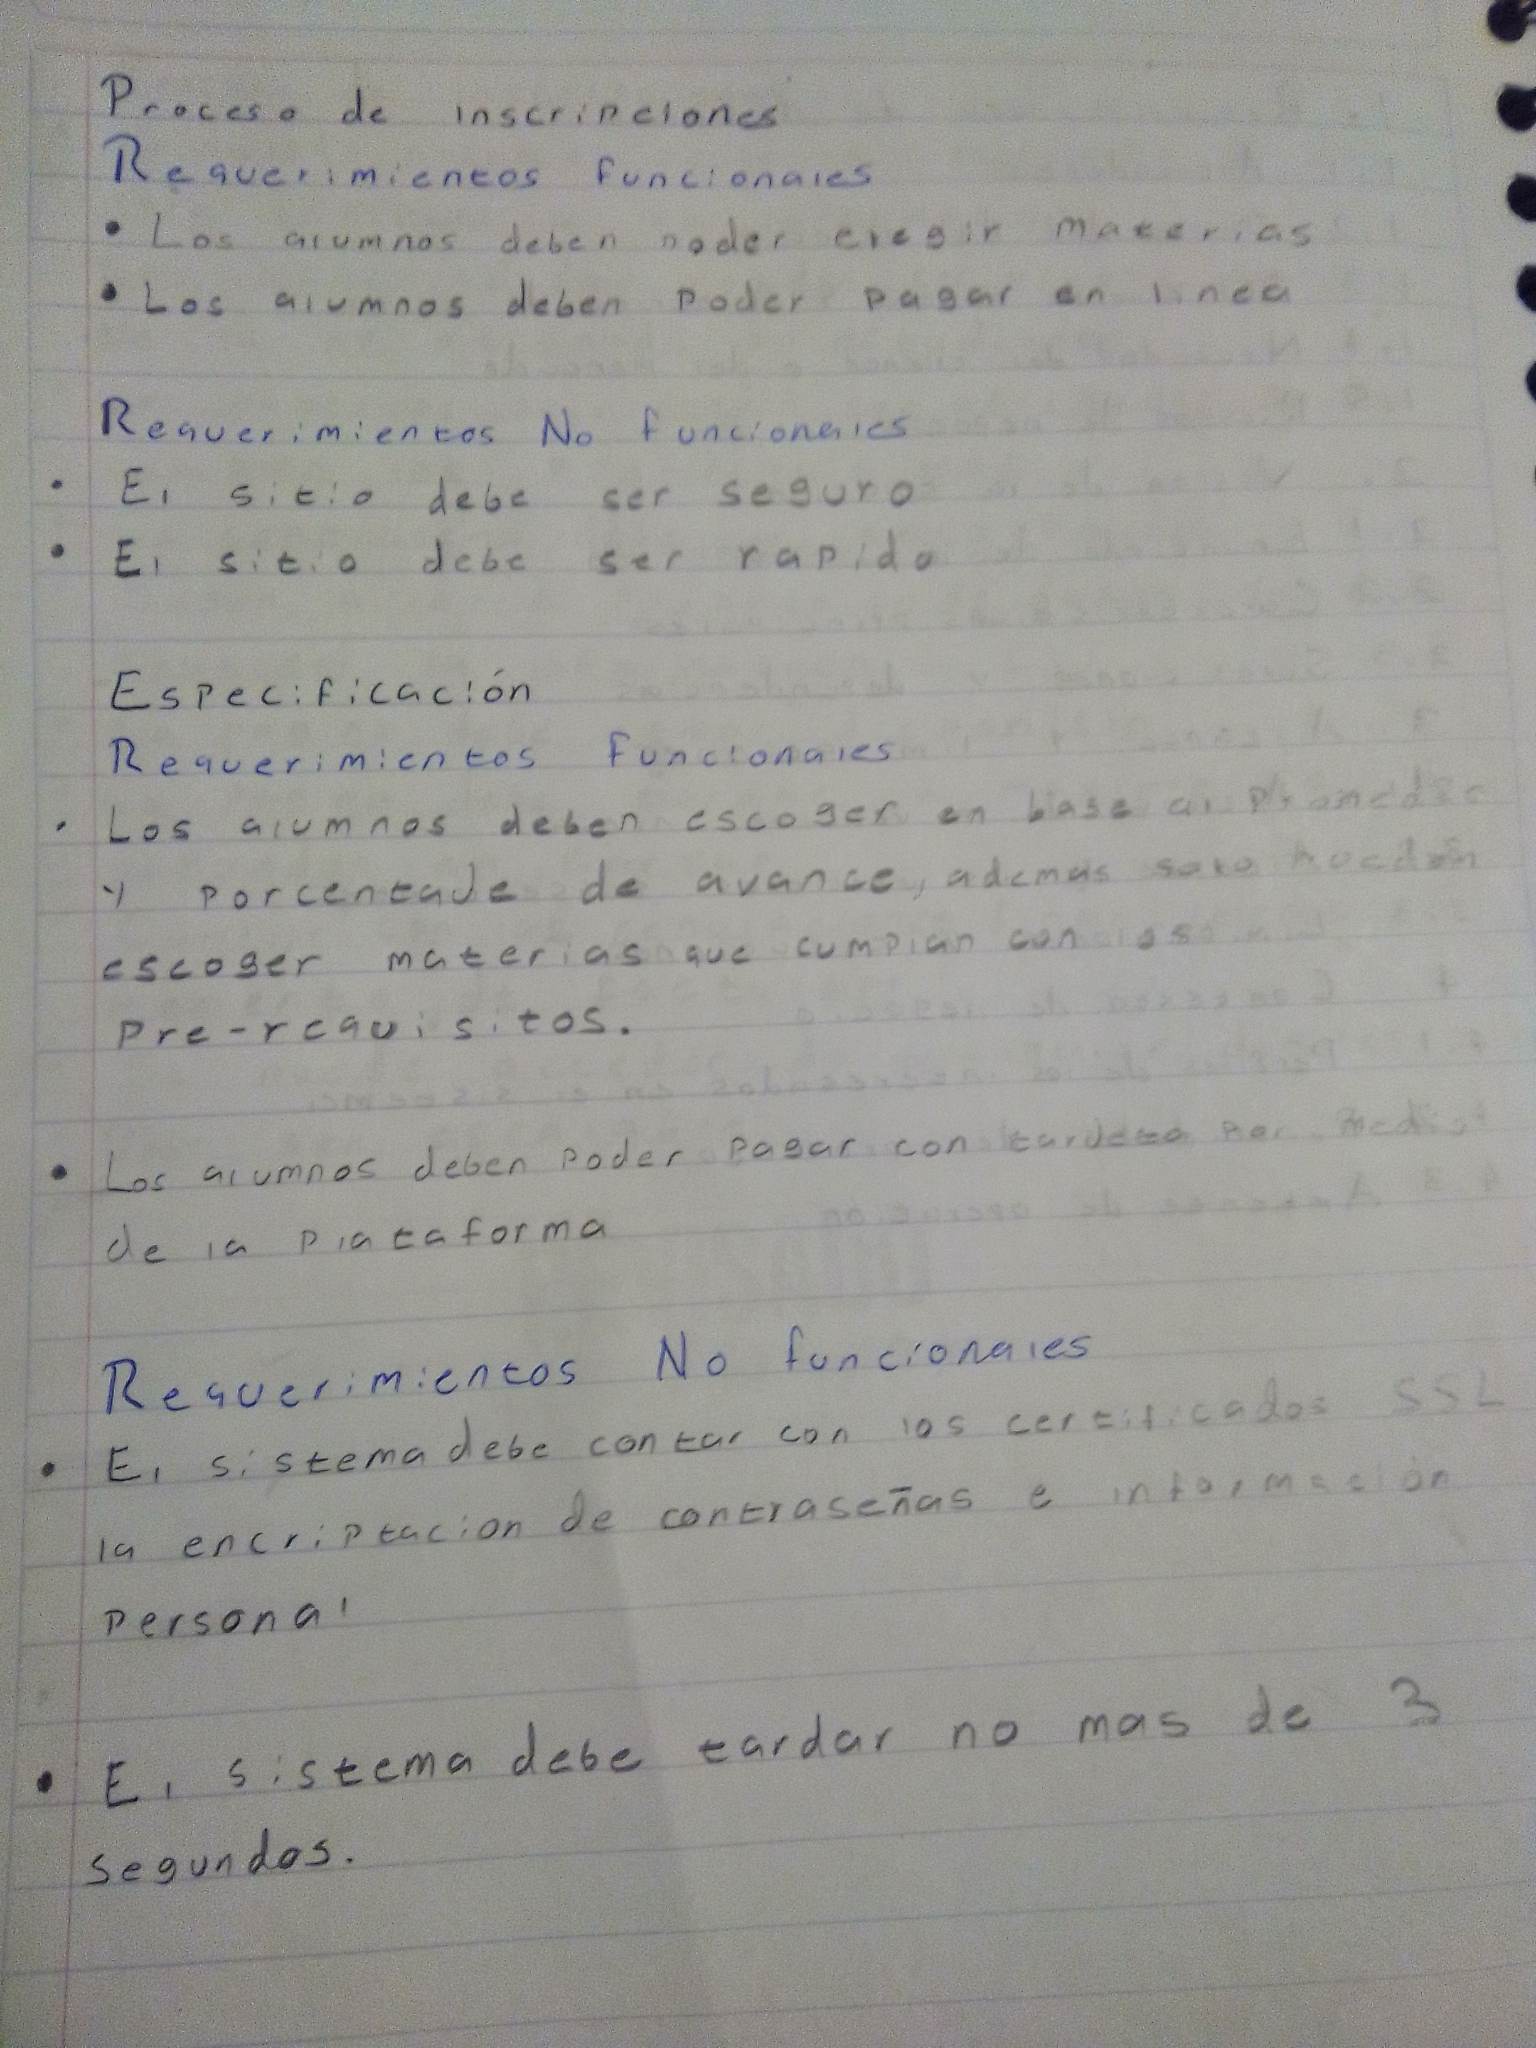 Proceso de inscripciones
Requerimientos funcionales
• Los alumnos deben poder elegir materias
• Los alumnos deben poder pagar en linea
Requerimientos No funcionales
• El sitio debe ser seguro
• El sitio debe ser rapido
Especificación
Requerimientos Funcionales
• Los alumnos deben escoger en base al promedio
y porcentaje de avance, ademas solo pueden
escoger materias que cumplan con los
Pre-requisitos.
• Los alumnos deben poder pagar con tarjeta por medio
de la plataforma
Requerimientos No funcionales
• El sistema debe contar con los certificados SSL
la encriptacion de contraseñas e información
personal
• El sistema debe tardar no mas de 3
segundos.